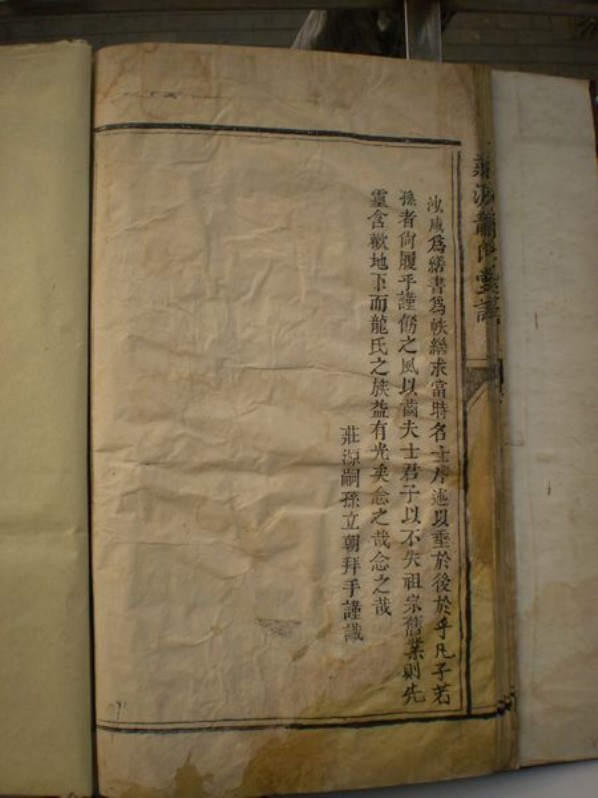 莊源龍氏譜
汝咸為繕書為帙求當時名士序述以垂於後於乎凡子若
孫者尙履乎謹飭之風以齒夫士君子以不失祖宗舊業則先
靈含歡地下而龍氏之族益有光矣念之哉念之哉
莊源嗣孫立朝拜手謹識